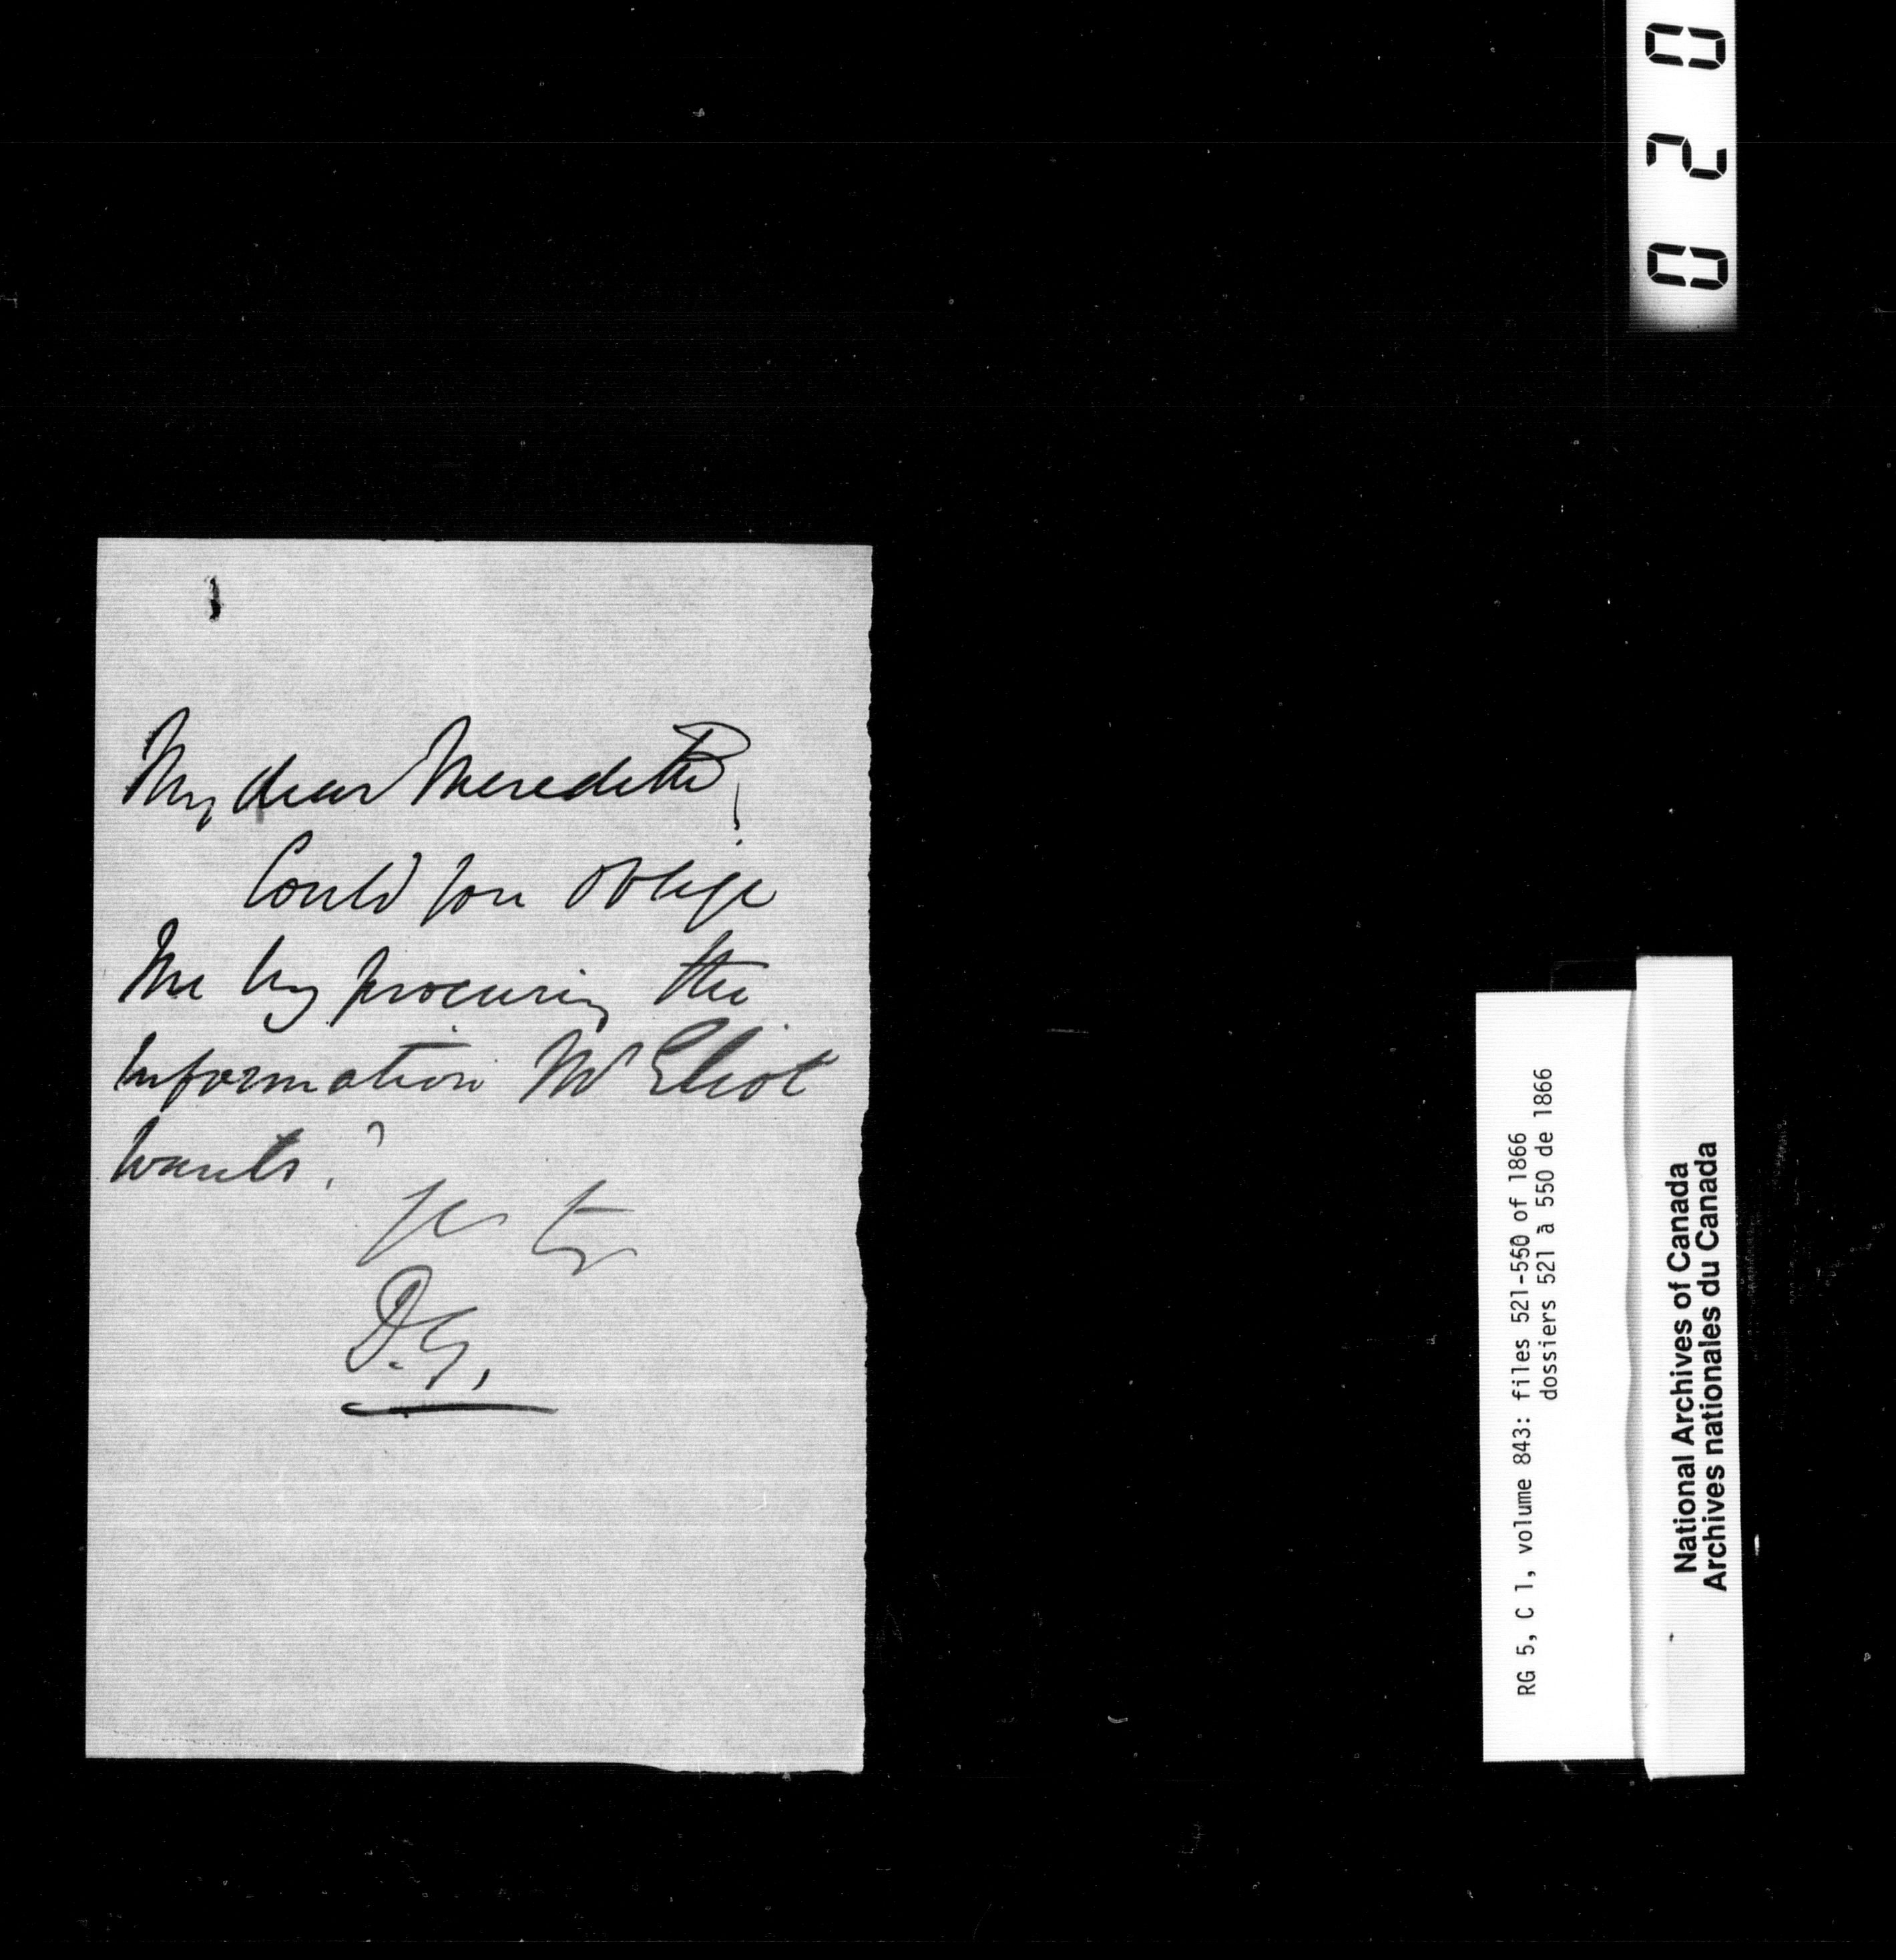 My dear Meredith,
Could you oblige
me by procuring the
information Mr Eliot
wants?
D.G.
020
RG 5, C 1, volume 843: files 521-550 of 1866
dossiers 521 à 550 de 1866
National Archives of Canada
Archives nationales du Canada